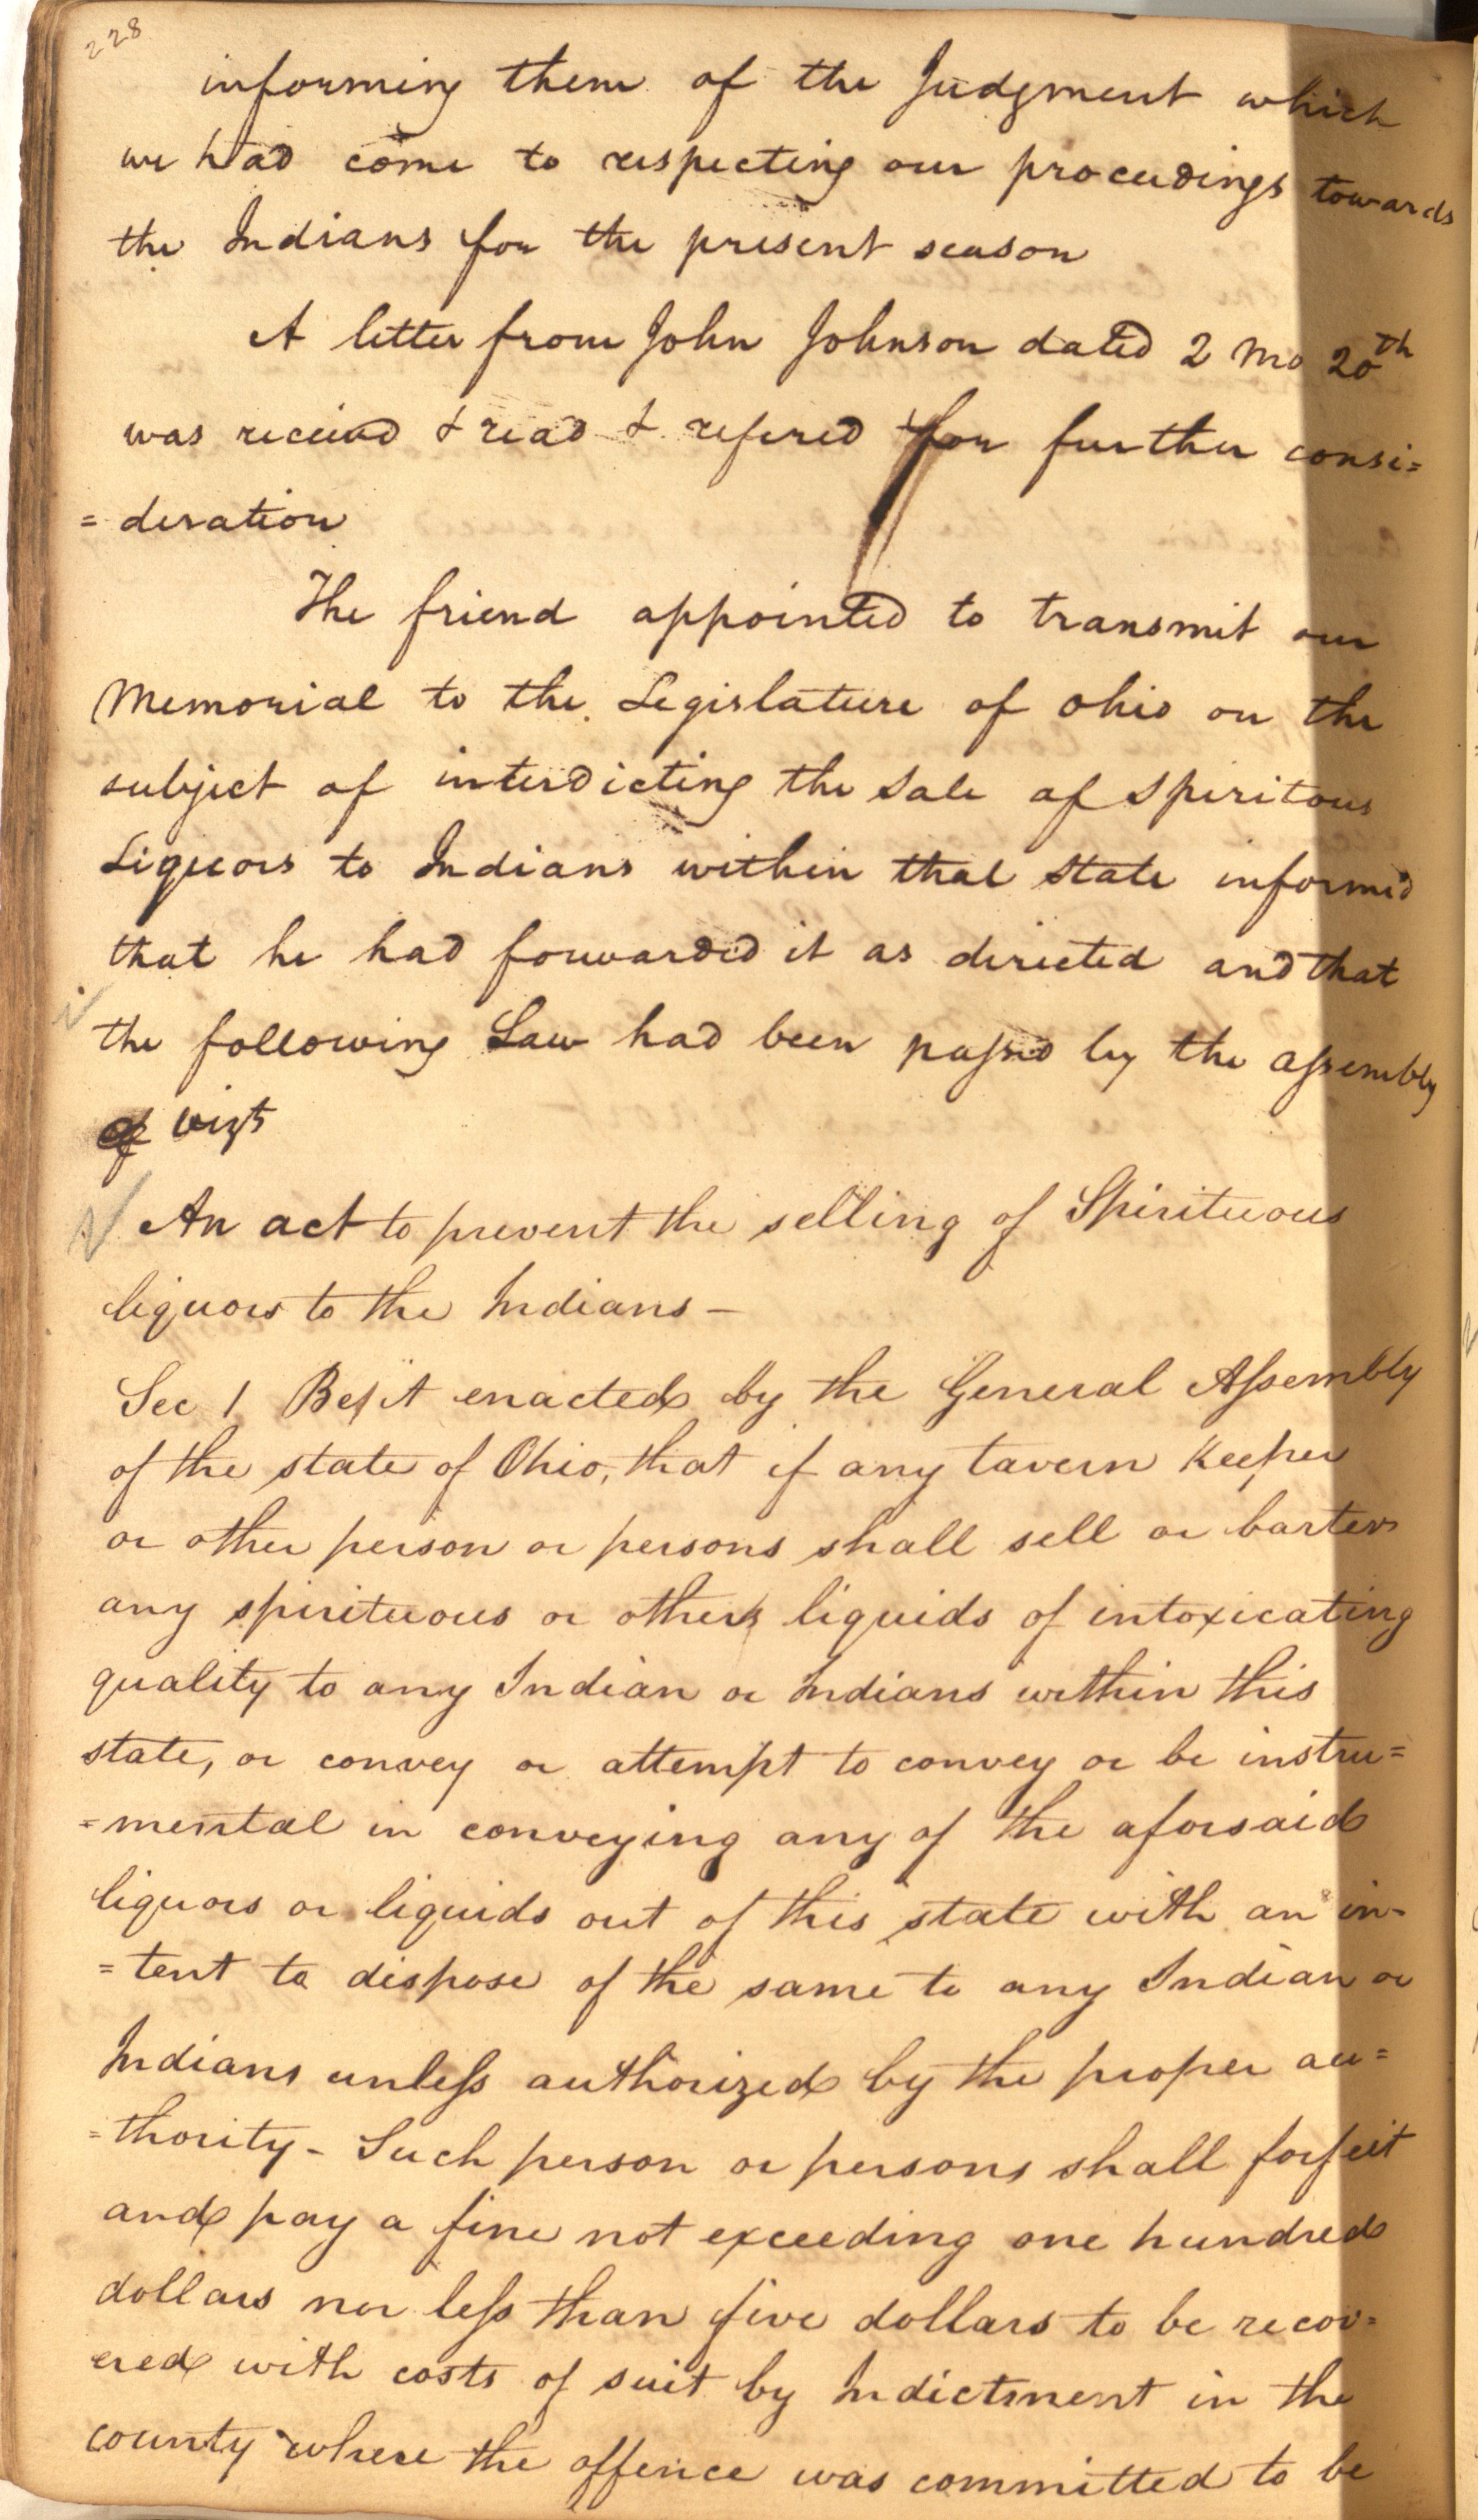 228
informing them of the Judgment which
we had come to respecting our proceedings towards
the Indians for the present season
A letter from John Johnson dated 2 mo 20th
was received & read & refered for further consi=
= deration
The friend appointed to transmit our
Memorial to the Legislature of Ohio on the
subject of interdicting the Sale of Spiritous
Liquors to Indians within that State informed
that he had forwarded it as directed and that
the following Law had been passed by the assembly
of vizt
An act to prevent the selling of Spirituous
liquors to the Indians –
Sec 1 Be it enacted by the General Assembly
of the state of Ohio, that if any tavern Keeper
or other person or persons shall sell or barter
any spirituous or others liquids of intoxicating
quality to any Indian or Indians within this
state, or convey or attempt to convey or be instru=
=mental in conveying any of the aforsaid
liquors or liquids out of this state with an in-
=tent to dispose of the same to any Indian or
Indians unless authorized by the proper au=
=thority – Such person or persons shall forfeit
and pay a fine not exceeding one hundred
dollars nor less than five dollars to be recov=
ered with costs of suit by Indictment in the
county where the offence was committed to be